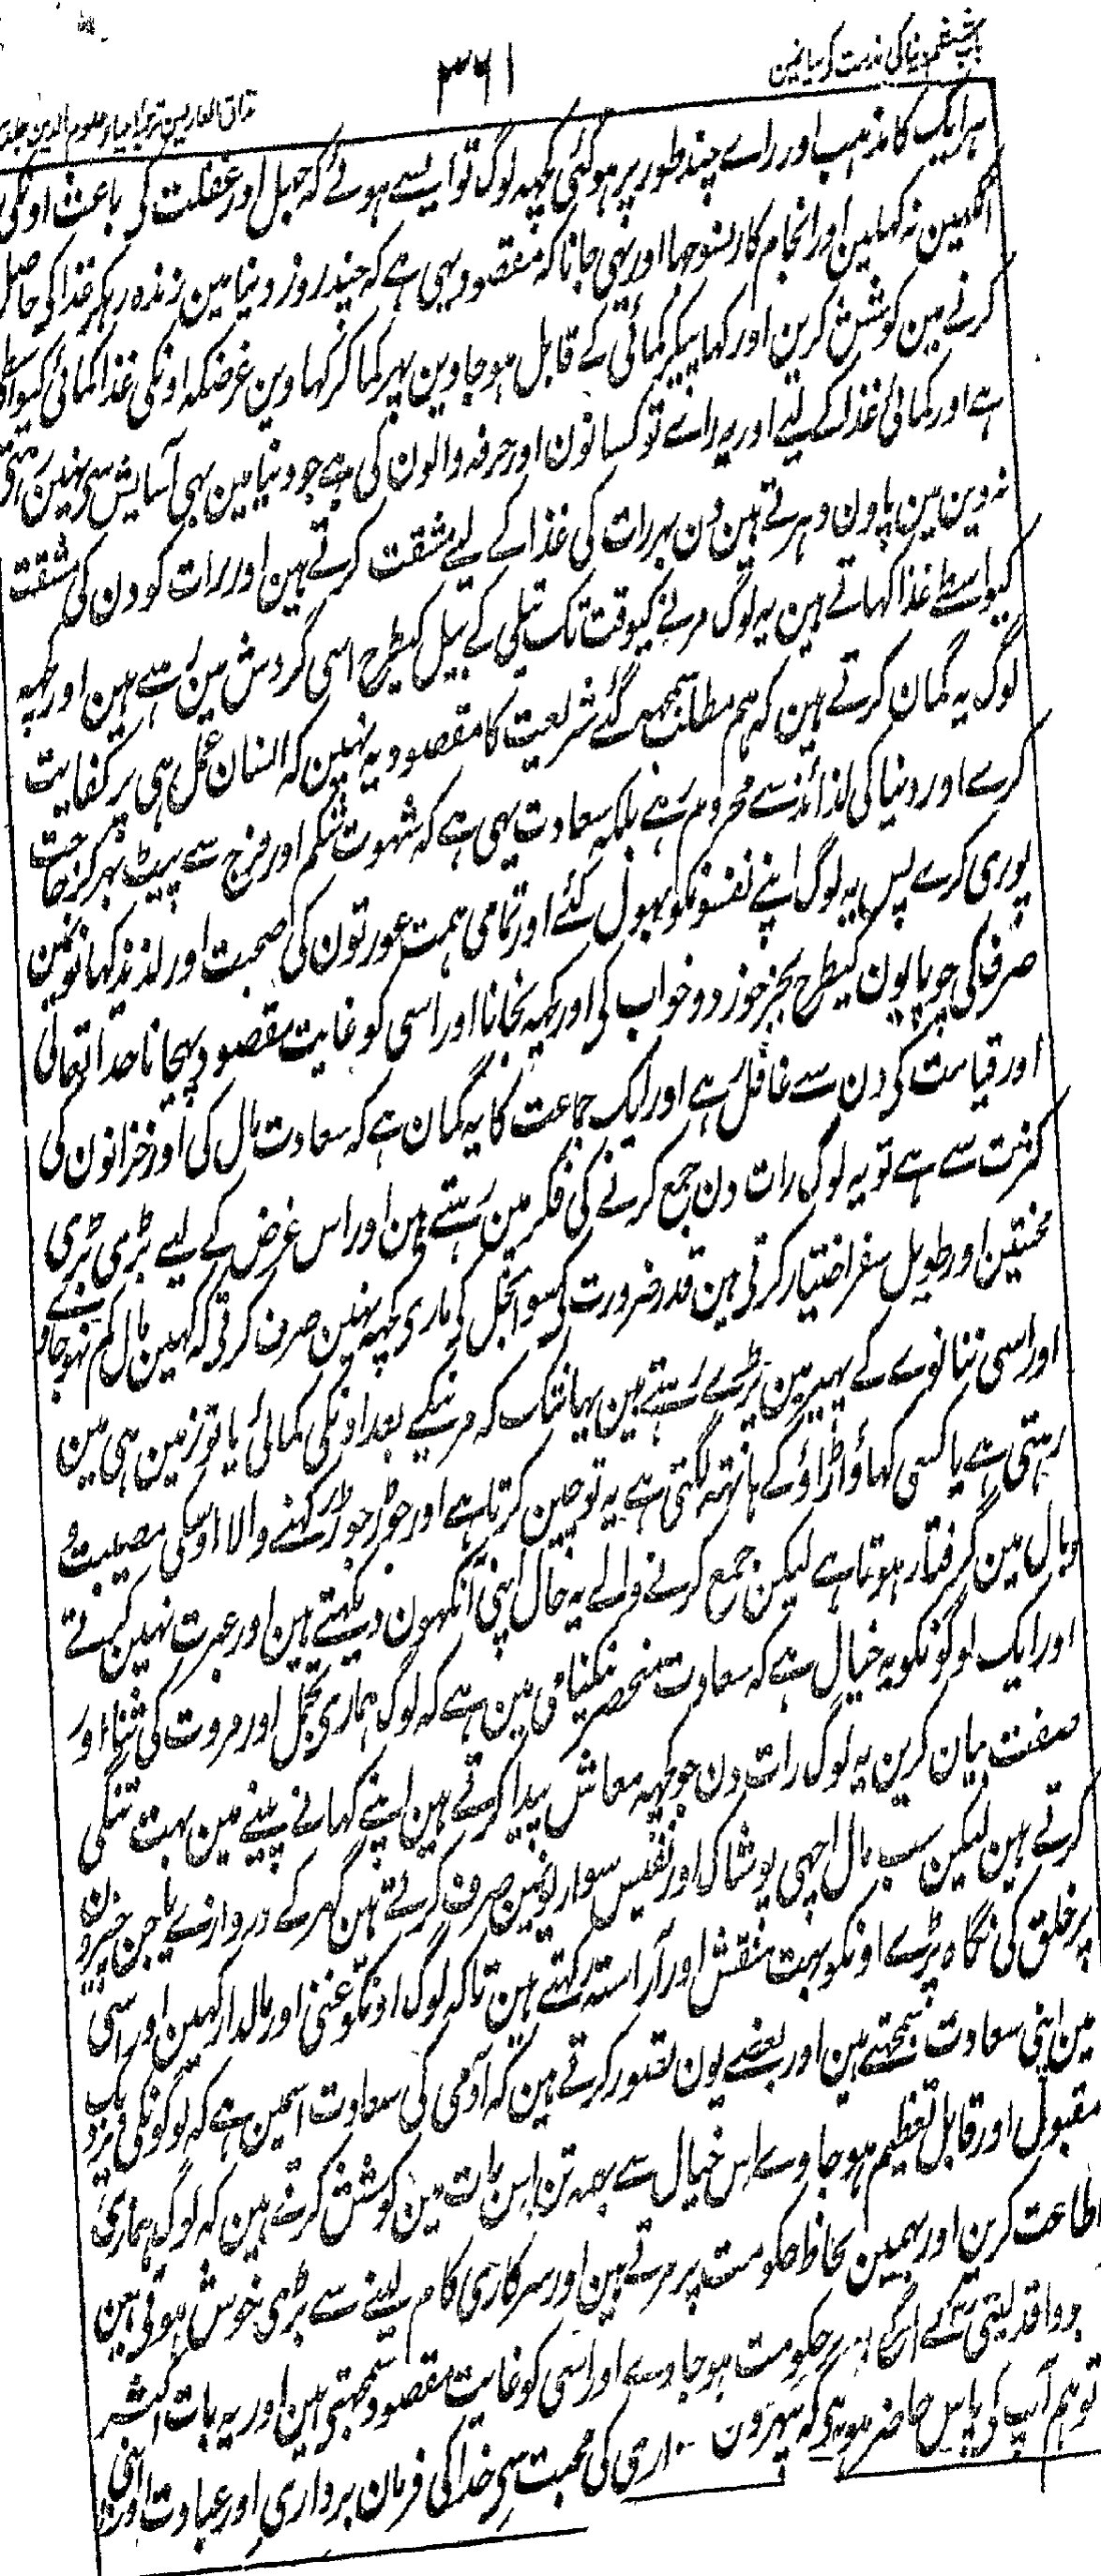 باب ششم دنیا کی مذمت کے بیانمین
۳۶۱
مذاق العارفین ترجمہ احیاء علوم الدین جلد
ہر ایک کا مذہب اور راے چند طور پر ہو گئی کچہہ لوگ تو ایسے ہوئے کہ جہل اور غفلت کی باعث اونکی
آنکہین نہ کہلین اور انجام کار نسوجہا اور یہی جانا کہ مقصود یہی ہے کہ چند روز دنیا مین زندہ رہکر غذا کی حاصل
کرنے مین کوشش کرین اور کہا پیکر کمائی کے قابل ہو جاوین پہر کما کر کہاوین غرضکہ اونکی غذا کمائی کیواسطے
ہے اور کمائی غذا کے لیے اور یہ راے تو کسانون اور حرفہ والون کی ہے جو دنیا مین بہی آسایش سے نہین رہتے
نہ دین مین پاون دہرتے ہین دن بہر رات کی غذا کے لیے مشقت کرتے ہین اور رات کو دن کی مشقت
کیواسطے غذا کہاتے ہین یہ لوگ مرنے کیوقت تک تیلی کے بیل کیطرح اسی گردش مین رہتے ہین اور کچہہ
لوگ یہ گمان کرتے ہین کہ ہم مطلب سمجہہ گئے شریعت کا مقصود یہ نہین کہ انسان عمل ہی پر کفایت
کرے اور دنیا کی لذائذ سے محروم رہے بلکہ سعادت یہی ہے کہ شہوت شکم اور فرج سے پیٹ بہر کر حاجت
پوری کرے پس یہ لوگ اپنے نفسونکو بہول گئے اور تمامی ہمت عورتون کی صحبت اور لذیذ کہانونمین
صرف کی چوپایون کیطرح بجز خور دو خواب کی اور کچہہ نجانا اور اسی کو غایت مقصود پہچانا خدا تعالیٰ
اور قیامت کی دن سے غافل رہے اور ایک جماعت کا یہ گمان ہے کہ سعادت مال کی اور خزانون کی
کثرت سے ہے تو یہ لوگ رات دن جمع کرنے کی فکر مین رہتے ہین اور اس غرض کے لیے بڑی بڑی
محنتین اور طویل سفر اختیار کرتی ہین قدر ضرورت کی سوا بخل کی ماری کچہہ نہین صرف کرتی کہ کہین مال کم نہو جاے
اور اسی ننانوے کے پہیر مین پڑے رہتے ہین یہانتک کہ مرنیکے بعد اونکی کمائی یا تو زمین ہی مین
رہتی ہے یا کسی کہاؤ اڑاؤ کے ہاتہہ لگتی ہے یہ تو چین کرتا ہے اور جوڑ جوڑ رکہنے والا اوسکی مصیبت و
وبال مین گرفتار ہوتا ہے لیکن جمع کرنے والے یہ حال اپنی آنکہون دیکہتے ہین اور عبرت نہین کرتے
اور ایک لوگونکو یہ خیال ہے کہ سعادت منحصر نیکنامی مین ہے کہ لوگ ہماری تجمل اور مروت کی ثنا اور
صفت بیان کرین یہ لوگ رات دن جو کچہہ معاش پیدا کرتے ہین اپنے کہانے پینے مین بہت تنگی
کرتے ہین لیکن سب مال اچہی پوشاک اور نفیس سواریونمین صرف کرتے ہین گہر کے دروازے یا جن چیزون
پر خلق کی نگاہ پڑے اونکو بہت منقش اور آراستہ رکہتے ہین تاکہ لوگ اونکو غنی اور مالدار کہین اور اسی
مین اپنی سعادت سمجہتے ہین اور بعضے یون تصور کرتے ہین کہ آدمی کی سعادت اسمین ہے کہ لوگونکی نزدیک
مقبول اور قابل تعظیم ہو جاوے اس خیال سے ہمہ تن اس بات مین کوشش کرتے ہین کہ لوگ ہماری
اطاعت کرین اور ہمین لحاظ حکومت پر مرتے ہین اور سرکاری کام لینے سے بڑی خوش ہوتی ہین
حکومت ہو جاوے اور اسی کو غایت مقصود سمجہتی ہین اور یہ بات اکثر
تو ہم آپ کی پاس حاضر ہوے کی محبت سی خدا کی فرمان برداری اور عبادت اور اپنی